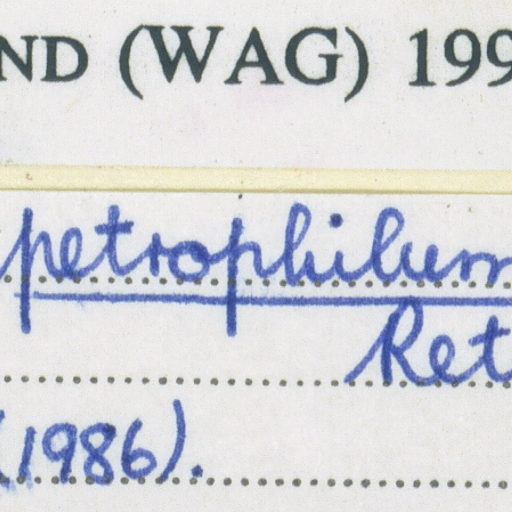 ND (WAG) 199
petrophilum
Ret
(1986).